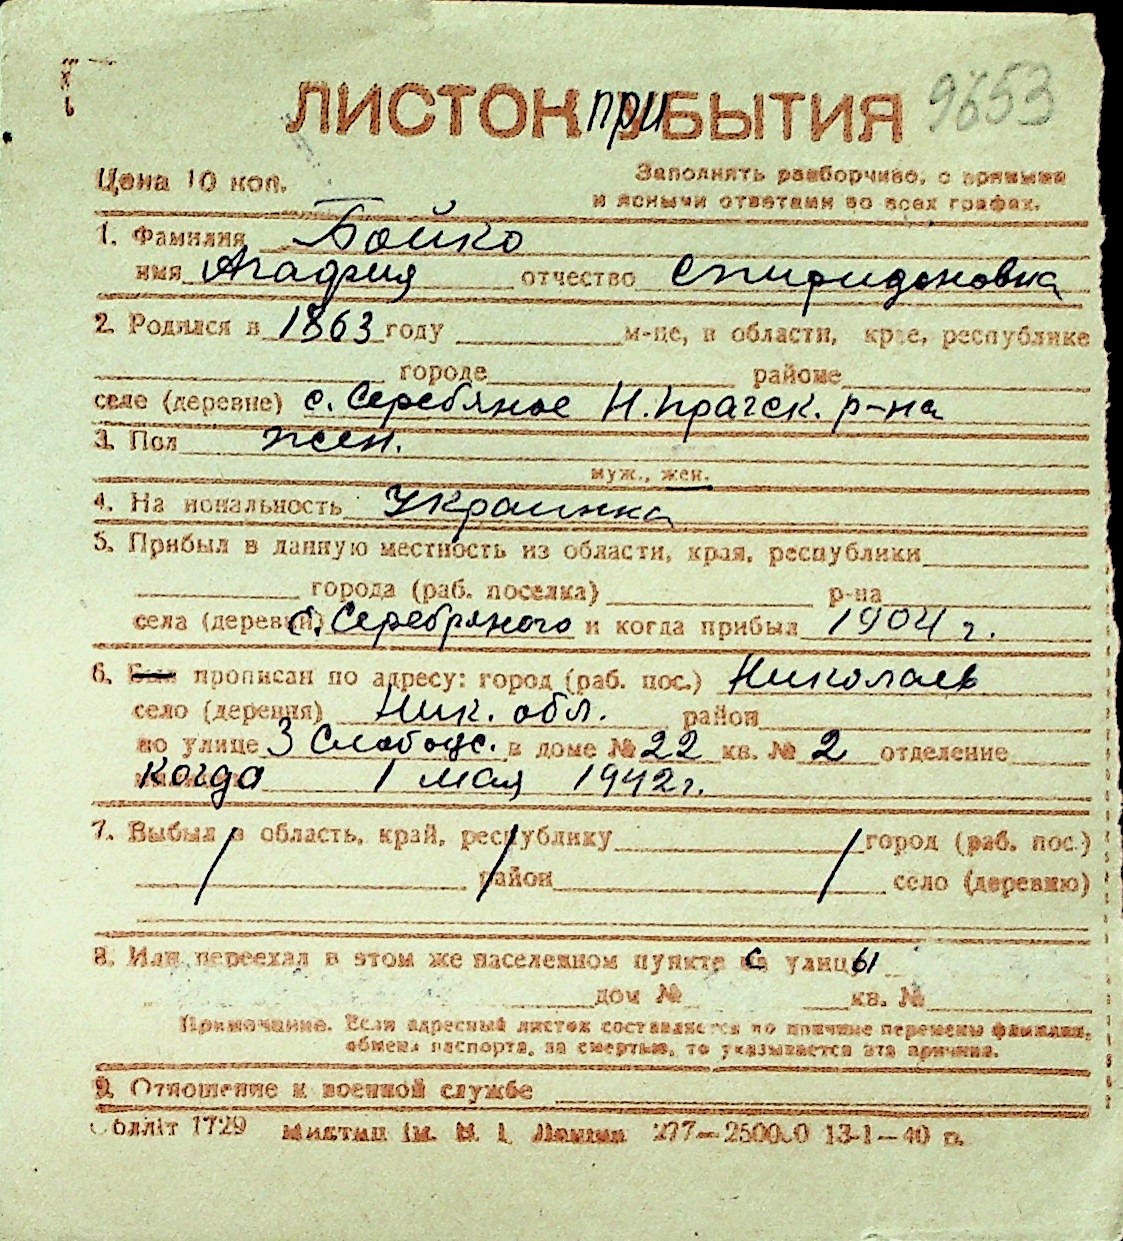 ЛИСТОК ПРИБЫТИЯ 9653
Цена 10 коп. Заполнять разборчиво, с прямыми
и ясными ответами во всех графах.
1. Фамилия Бойко
имя Агафия отчество Спиридоновка
2. Родился в 1863 году м-це, в области, крае, республике
городе районе
селе (деревне) с. Серебряное Н. Прагск. р-на
3. Пол жен.
муж., жен.
4. На иональность Украинка
5. Прибыл в данную местность из области, края, республики
города (раб. поселка) р-на
села (деревни) с. Серебряного и когда прибыл 1904 г.
6. прописан по адресу: город (раб. пос.) Николаев
село (деревня) Ник. обл. район
по улице 3 Слободс. в доме № 22 кв. № 2 отделение
когда 1 мая 1942 г.
7. Выбыл в область, край, республику город (раб. пос.)
район село (деревню)
8. Или переехал в этом же населенном пункте с улицы
дом № кв. №
Примечание. Если адресный листок составляется по причине перемены фамилии,
обмена паспорта, за смертью, то указывается эта причина.
9. Отношение к военной службе
Обллiт 1729 iм. В. I. Ленiна 277—250000 13-1—40 р.